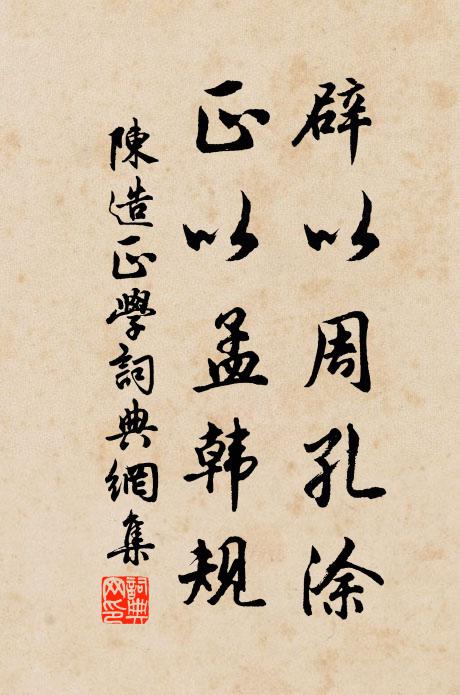 辟以周孔涂
正以孟韩规
陳造正學詞典網集
詞典網印